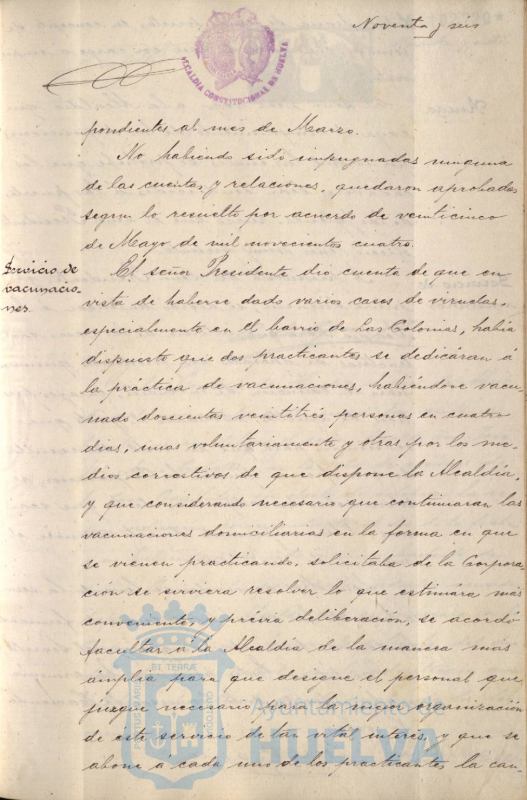 Noventa y seis
ALCALDIA CONSTITUCIONAL DE HUELVA
pondientes al mes de Marzo.
No habiendo sido impugnadas ninguna
de las cuentas y relaciones, quedaron aprobadas
segun lo resuelto por acuerdo de veinticinco
de Mayo de mil novecientos cuatro.
Servicio de
vacunacio-
nes.
El señor Presidente dio cuenta de que en
vista de haberse dado varios casos de viruelas,
especialmente en el barrio de Las Colonias, habia
dispuesto que dos practicantes se dedicáran á
la práctica de vacunaciones, habiéndose vacu-
nado doscientas veintitrés personas en cuatro
dias, unas voluntariamente y otras por los me-
dios correctivos de que dispone la Alcaldía,
y que considerando necesario que continuaran las
vacunaciones domiciliarias en la forma en que
se vienen practicando, solicitaba de la Corpora
ción se sirviera resolver lo que estimára más
conveniente, y prévia deliberación, se acordó
facultar á la Alcaldía de la manera más
ámplia para que designe el personal que
juzgue necesario para la mejor organización
de este servicio de tan vital interés, y que se
abone a cada uno de los practicantes la can-
PORTUS MARIS
ET TERRÆ
CUSTODIA
Ayuntamiento de
HUELVA